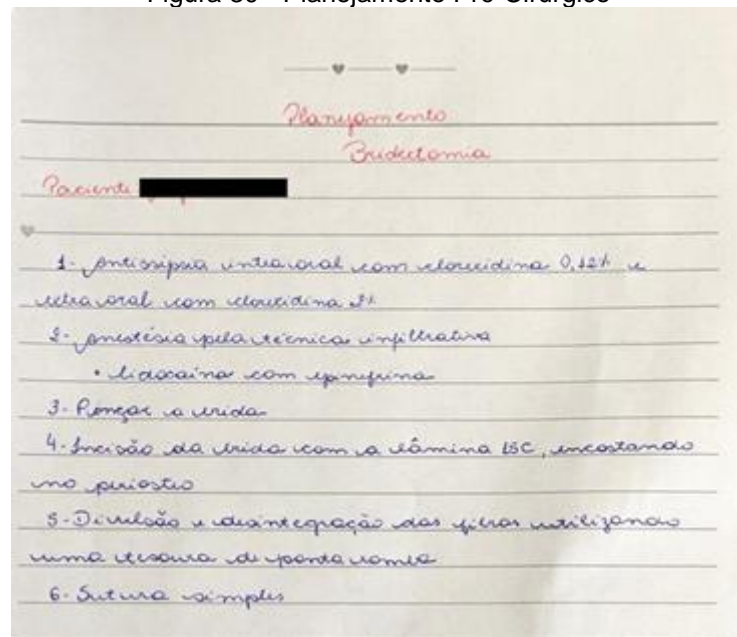 Figura 30 - Planejamento Pré-Cirúrgico
Planejamento
Bridectomia
Paciente
1- Antissepsia intraoral com clorexidina 0,12% e
extraoral com clorexidina 2%
2- Anestésia pela técnica infiltrativa
• lidocaína com epinefrina
3- Pinçar a brida
4- Incisão da brida com a lâmina 15C, encostando
no periósteo
5- Divulsão e desintegração das fibras utilizando
uma tesoura de ponta romba
6- Sutura simples